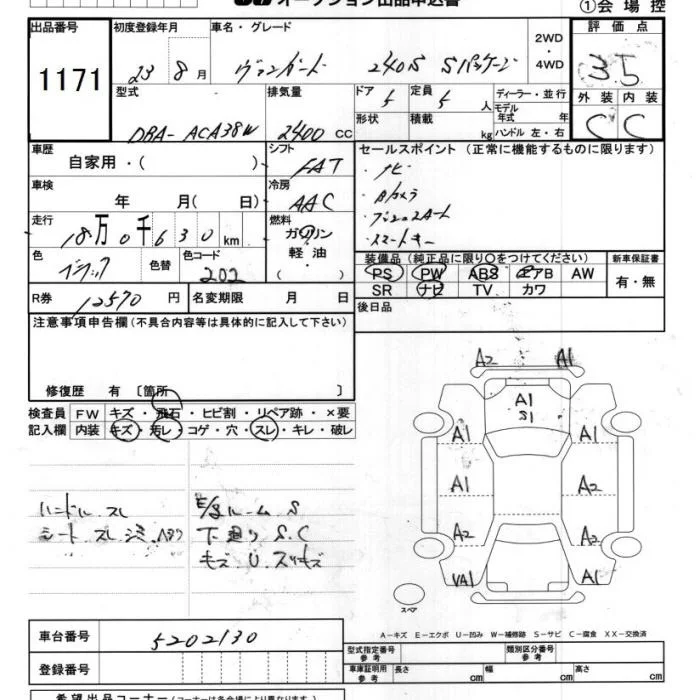 オークション出品申込書
①会場控
出品番号 初度登録年月 車名・グレード 2WD ・ 4WD 評価点
1171 23 8月 ヴァンガード 240S Sパッケージ 3.5
外装 内装
C C
型式 排気量 ドア 定員 人 ディーラー・並行
DBA-ACA38W 2400 CC 5 5 モデル年式 年
形状 積載 kg ハンドル 左・右
車歴 シフト セールスポイント (正常に機能するものに限ります)
自家用・( ) FAT ・ナビ
車検 冷房 ・Bカメラ
年 月( 日) AAC ・プッシュスタート
走行 燃料 ・スマートキー
18万0千630km ガソリン 軽油 ( )
色 色替 色コード 装備品 (純正品に限り○をつけてください) 新車保証書
ブラック 202 PS PW ABS エアB AW 有・無
SR ナビ TV カワ
R券 12570円 名変期限 月 日 後日品
注意事項申告欄(不具合内容等は具体的に記入して下さい)
修復歴 有 〔箇所 〕
検査員 FW キズ・飛石・ヒビ割・リペア跡・×要
記入欄 内装 キズ・汚レ・コゲ・穴・スレ・キレ・破レ
ハンドル スレ E/gルーム S
シート スレ シミ ヘタリ 下廻り S.C
キズ U.スリキズ
A2 A1
A1
S1
A1 A1
A1 A2
A2 A2
VA1 A1
スペア
A-キズ E-エクボ U-凹み W-補修跡 S-サビ C-腐食 XX-交換済
車台番号 5202130 型式指定番号 参考 類別区分番号 参考
登録番号 車庫証明用 参考 長さ cm 幅 cm 高さ cm
希望出品コーナー(コーナーは各会場により異なります)